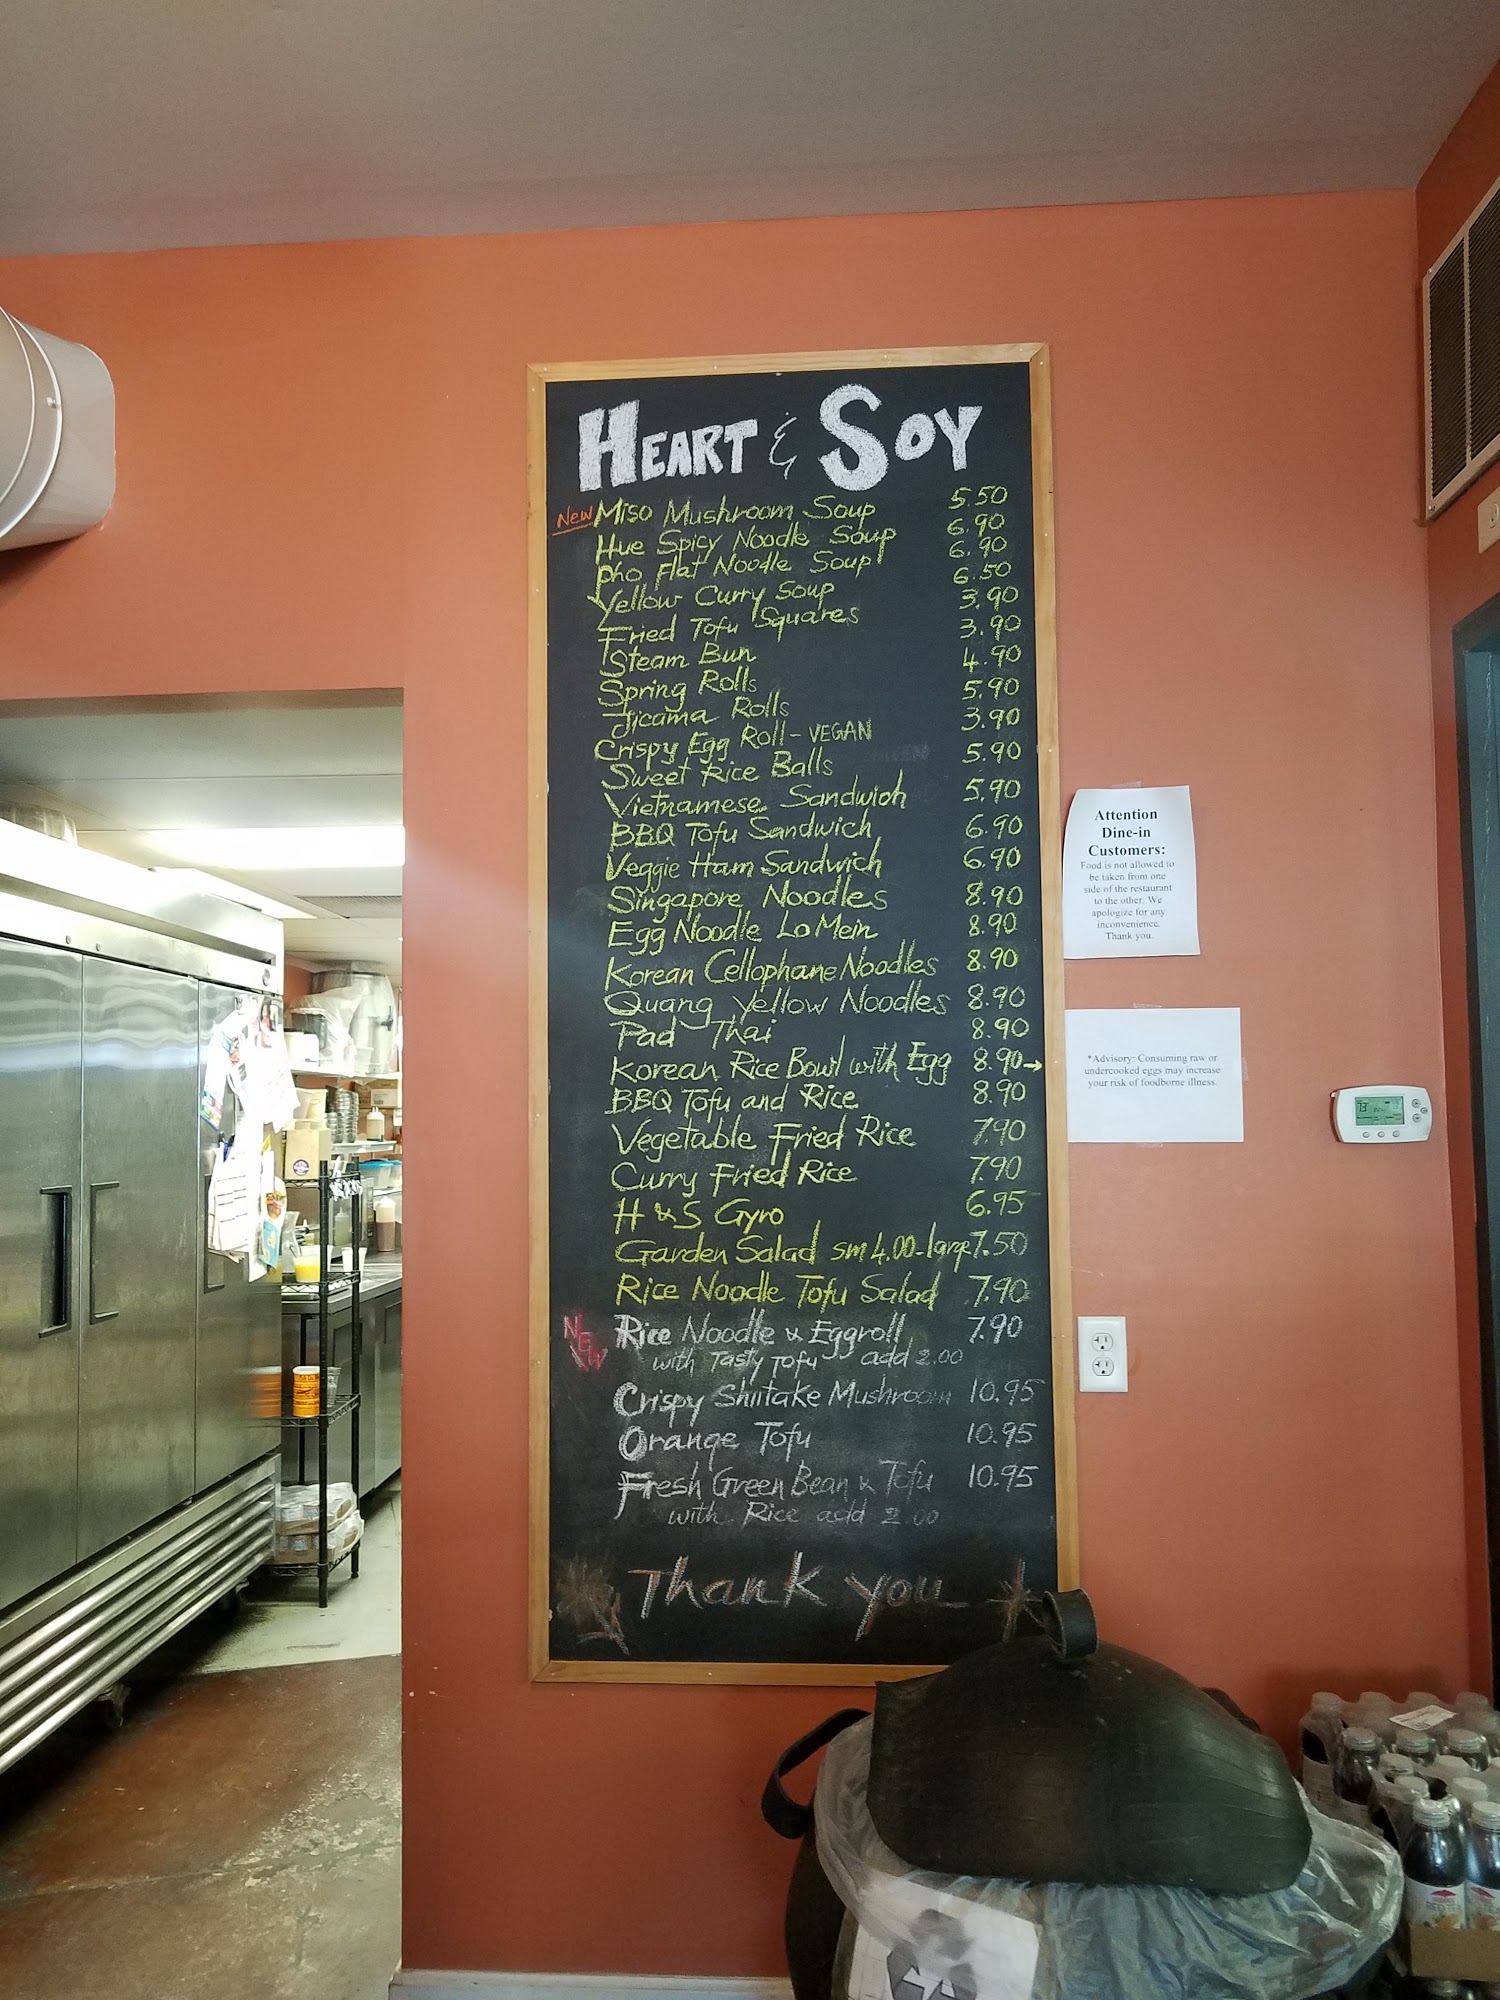 HEART & SOY
New Miso Mushroom Soup 5.50
Hue Spicy Noodle Soup 6.90
Pho Flat Noodle Soup 6.90
Yellow Curry Soup 6.50
Fried Tofu Squares 3.90
Steam Bun 3.90
Spring Rolls 4.90
Jicama Rolls 5.90
Crispy Egg Roll - VEGAN 3.90
Sweet Rice Balls 5.90
Vietnamese Sandwich 5.90
BBQ Tofu Sandwich 6.90
Veggie Ham Sandwich 6.90
Singapore Noodles 8.90
Egg Noodle Lo Mein 8.90
Korean Cellophane Noodles 8.90
Quang Yellow Noodles 8.90
Pad Thai 8.90
Korean Rice Bowl with Egg 8.90→
BBQ Tofu and Rice 8.90
Vegetable Fried Rice 7.90
Curry Fried Rice 7.90
H & S Gyro 6.95
Garden Salad sm 4.00-large 7.50
Rice Noodle Tofu Salad 7.90
NEW Rice Noodle & Eggroll 7.90
with Tasty Tofu add 2.00
Crispy Shiitake Mushroom 10.95
Orange Tofu 10.95
Fresh Green Bean & Tofu 10.95
with Rice add 2.00
Thank you
Attention
Dine-in
Customers:
Food is not allowed to
be taken from one
side of the restaurant
to the other. We
apologize for any
inconvenience.
Thank you.
*Advisory: Consuming raw or
undercooked eggs may increase
your risk of foodborne illness.
73